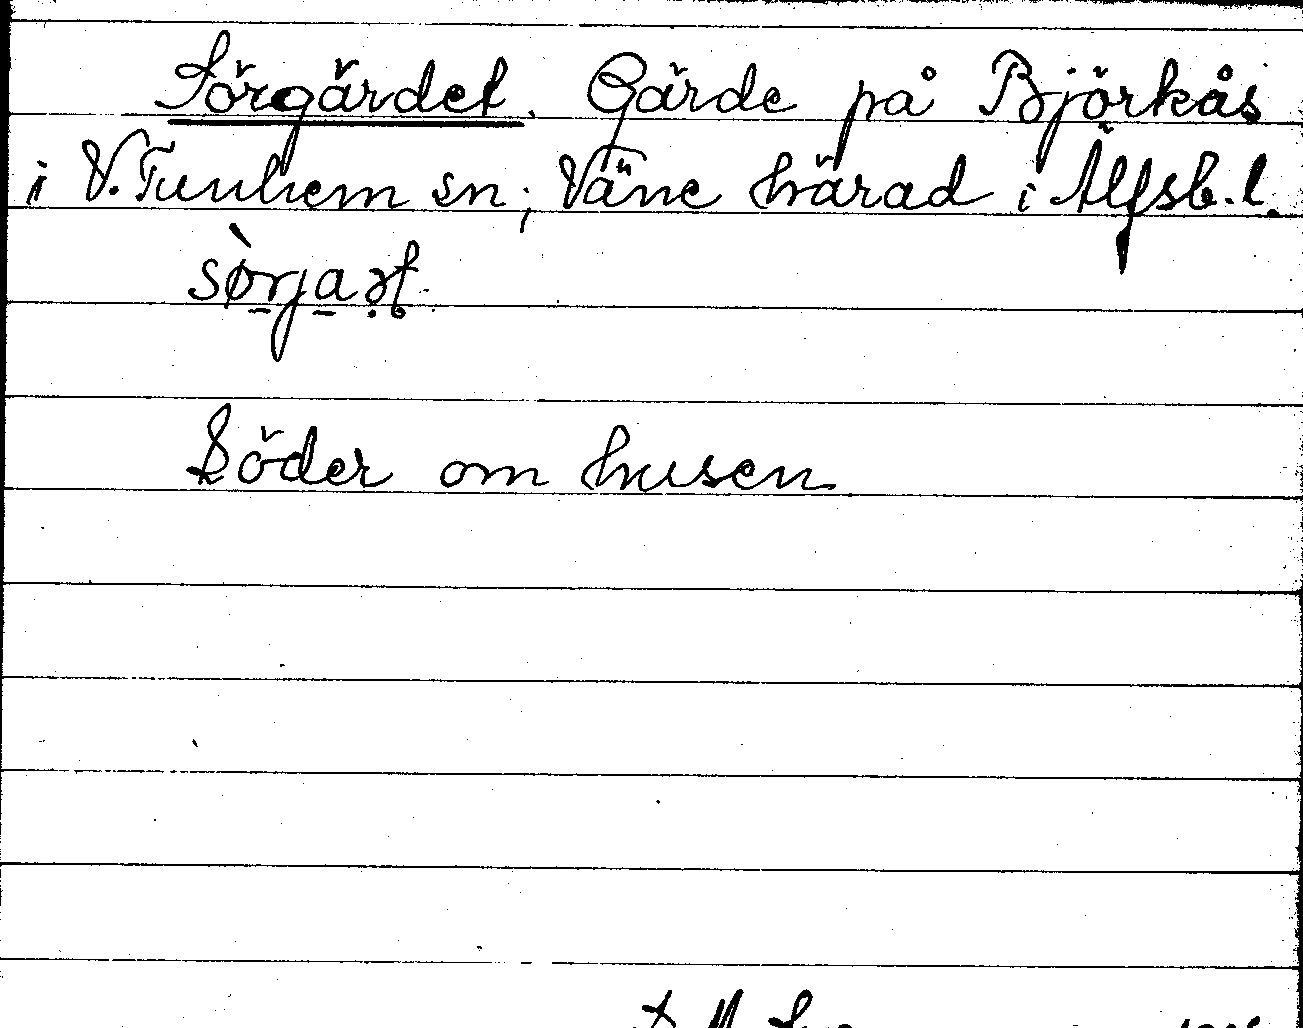 Sörgärdet. Gärde på Björkås
i V. Tunhem sn; Väne härad i Älfsb. l.
sø̀rja ət
Söder om husen